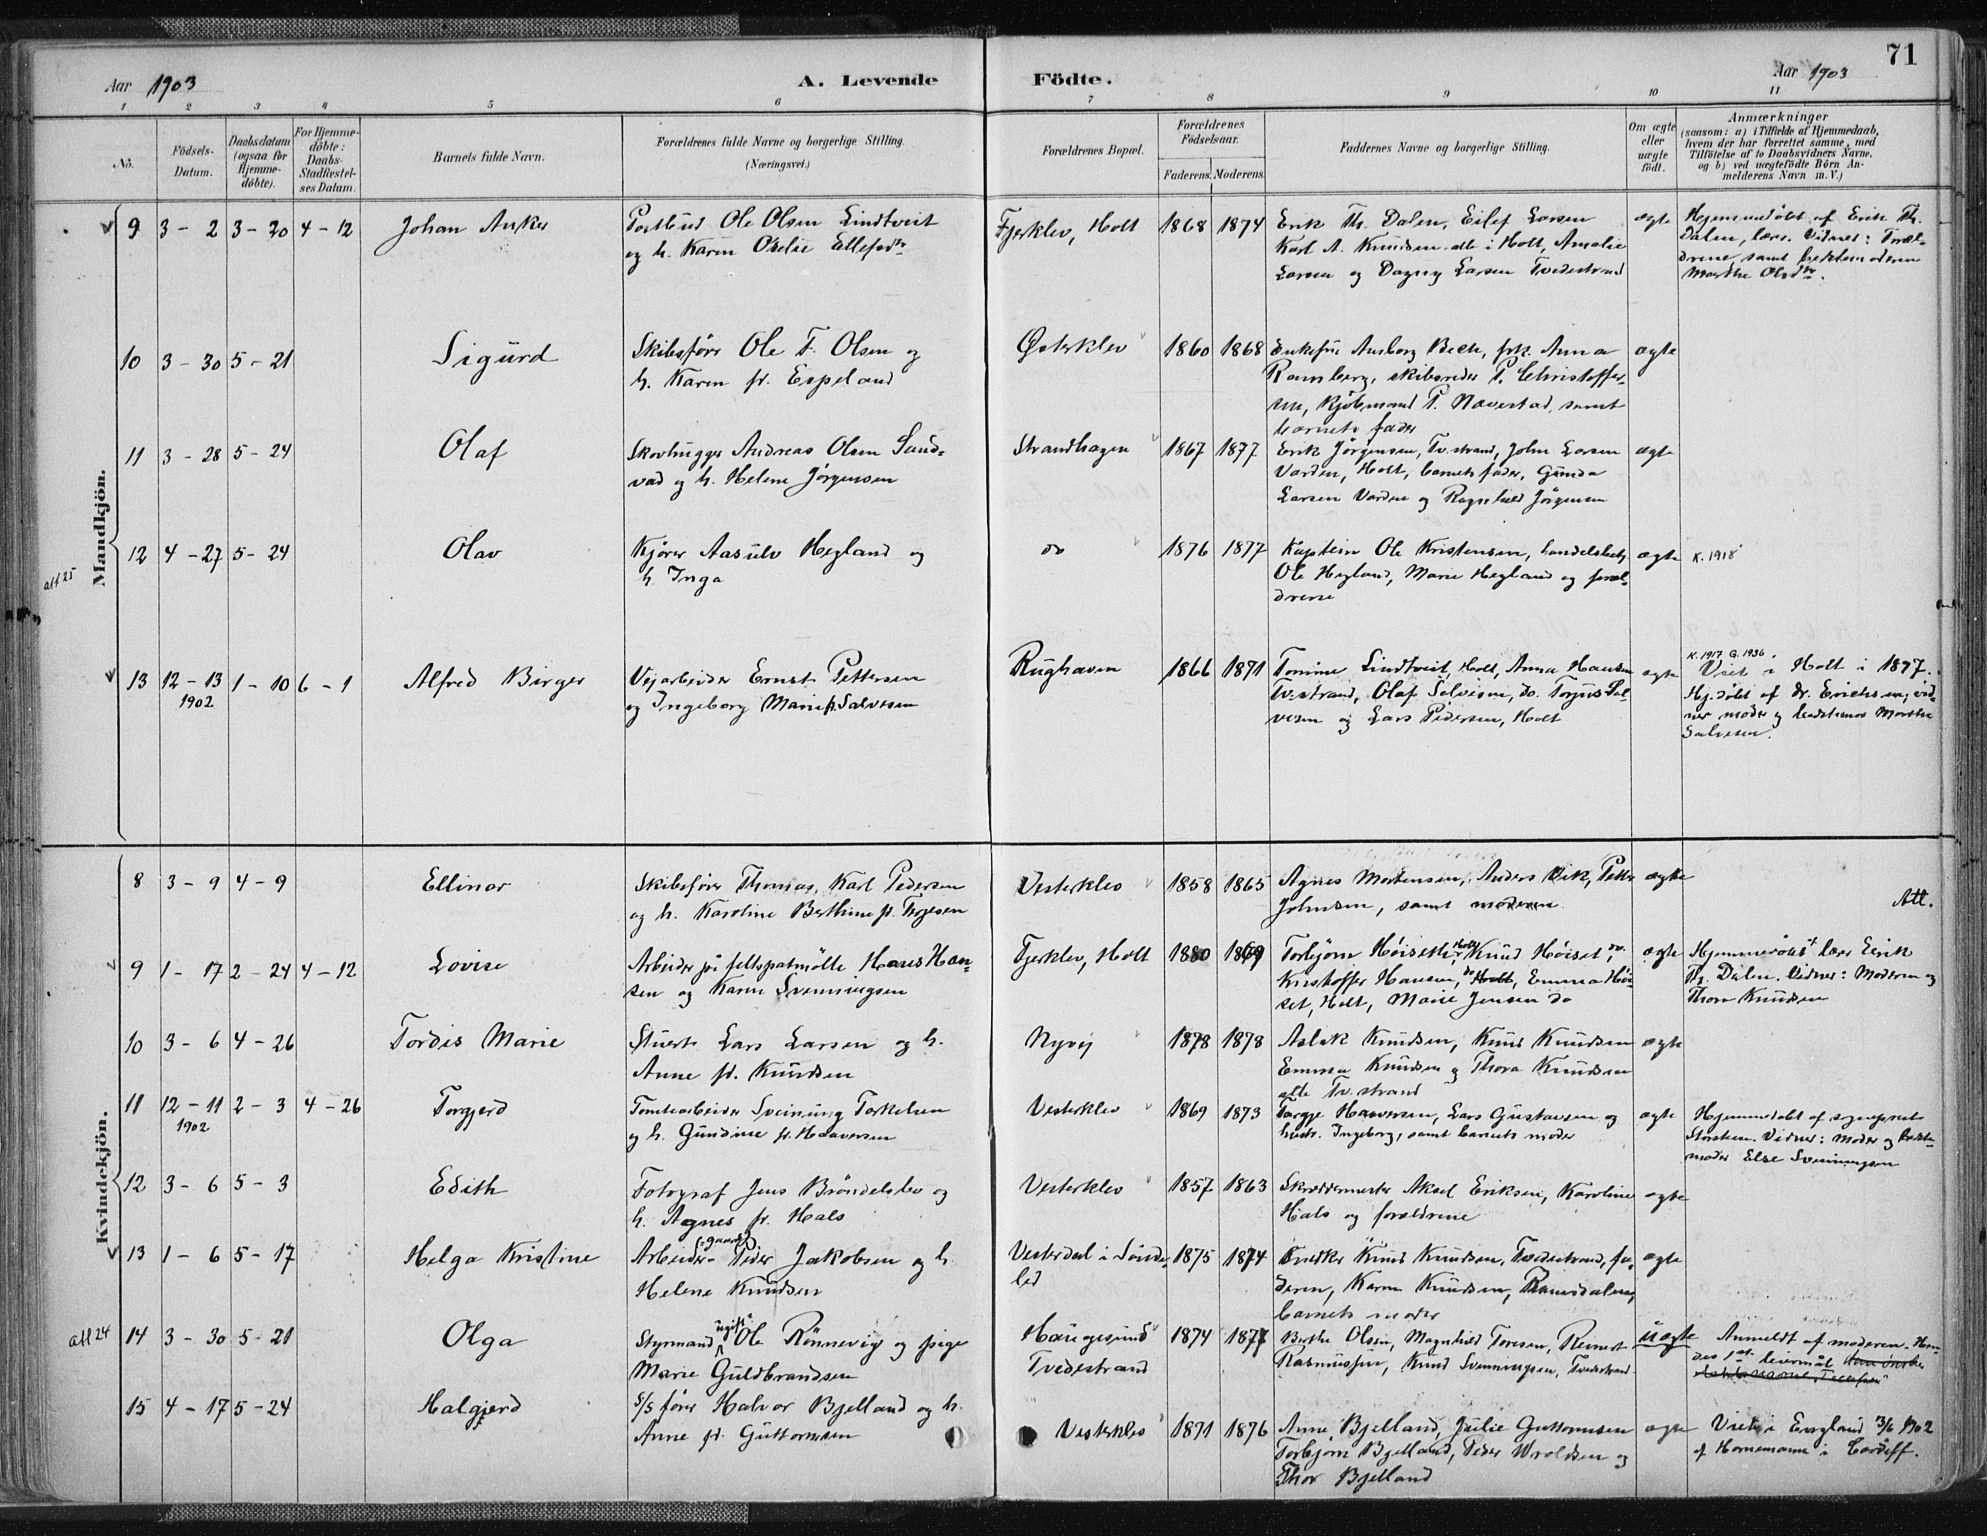 71
Aar 1903 A. Levende Födte. Aar 1903
1 2 3 4 5 6 7 8 9 10 11
No. Födsels-Datum. Daabsdatum (ogsaa for Hjemme-döbte). For Hjemme-döbte: Daabs-Stadfæstel-ses Datum. Barnets fulde Navn. Forældrenes fulde Navne og borgerlige Stilling. (Næringsvei.) Forældrenes Bopæl. Forældrenes Födselsaar. Faderens. Moderens. Faddernes Navne og borgerlige Stilling. Om ægte eller uægte födt. Anmærkninger (saasom: a) i Tilfælde af Hjemmedaab, hvem der har forrettet samme, med Tilföielse af to Daabsvidners Navne, og b) ved uægtefödte Börn An-melderens Navn m. V.)
Mandkjön.
att 25
9 3 - 2 3 - 20 4 - 12 Johan Anker Postbud Ole Olsen Lindtveit
og h. Karen Otelie Ellefsdtr
Fjerklev, Holt 1868 1874 Erik Th. Dalen, Eilef Larsen
Karl A. Knudsen alle i Holt, Amalie
Larsen og Dagny Larsen Tvedestrand
ægte Hjemmedöbt af Erik Th.
Dalen, lærer. Vidner: Foræl-
drene samt bedstemoderen
Marthe Olsdtr.
10 3 - 30 5 - 21 Sigurd Skibsförer Ole F. Olsen og
h. Karen f. Espeland
Østerklev 1860 1868 Enkefru Amborg Bech, frk. Anna
Ramberg, skibsreder P. Christoffer-
sen, kjöbmand P. Navestad, samt
barnets fader
ægte
11 3 - 28 5 - 24 Olaf Skovhugger Andreas Olsen Sand-
vad og h. Helene Jörgensen
Strandhagen 1867 1877 Erik Jörgensen, Tv.strand, John Larsen
Varden, Holt, barnets fader, Gunda
Larsen Varden og Ragnhild Jörgensen
ægte
12 4 - 27 5 - 24 Olav Kjörer Aasulv Hegland og
h. Inga
do 1876 1877 Kaptein Ole Kristensen, handelsbetj.
Ole Hegland, Marie Hegland og foræl-
drene
ægte K. 1918
13 12 - 13 1902 1 - 10 6 - 1 Alfred Birger Vejarbeider Ernst Pettersen
og Ingeborg Marie f. Salvesen
Rughaven 1866 1871 Tomine Lindtveit, Holt, Anna Hansen
Tv.strand, Olaf Selvisen, do. Torjus Sal-
vesen og Lars Pedersen, Holt
ægte K. 1917 G. 1936.
Viet i Holt i 1897.
Hj.döbt af dr. Erichsen; vid-
ner moder og bedstemor Marthe
Salvesen.
Kvindekjön.
att 24
8 3 - 9 4 - 9 Ellinor Skibsförer Thomas Karl Pedersen
og h. Karoline Berthine f. Terjesen
Vesterklev 1858 1865 Agnes Mortensen, Anders Vik, Petter
Johnsen, samt moderen
ægte Att.
9 1 - 17 2 - 24 4 - 12 Lovise Arbeider på feltspatmölle Hans Han-
sen og Karen Svenningsen
Fjerklev, Holt 1880 1869 Torbjörn Höiseth, Holt Knud Höiset, do.
Kristoffer Hansen, do Holt, Emma Höi-
set, Holt, Marie Jensen do
ægte Hjemmedöbt af lærer Erik
Th. Dalen. Vidner: Moderen og
Thora Knudsen
10 3 - 6 4 - 26 Tordis Marie Stuert Lars Larsen og h.
Anne f. Knudsen
Nyvej 1878 1878 Aslak Knudsen, Knud Knudsen
Emma Knudsen og Thora Knudsen
alle Tv.strand
ægte
11 12 - 11 1902 2 - 3 4 - 26 Torgjerd Tomtearbeider Sveinung Torkelsen
og h. Gundine f. Haaversen
Vesterklev 1869 1873 Targje Haaversen, Lars Gustavsen og
hustr. Ingeborg, samt barnets moder
ægte Hjemmedöbt af sogneprest
Storsteen. Vidner: Moder og bedste-
moder Else Svenningsen
12 3 - 6 5 - 3 Edith Fotograf Jens Bröndelslev og
h. Agnes f. Hals
Vesterklev 1857 1863 Skræddermester Aksel Eriksen, Karoline
Hals og forældrene
ægte
13 1 - 6 5 - 17 Helga Kristine Arbeider Peder Jakobsen og h.
Helene Knudsen
Vesterdal i Sönde-
led 1875 1874 Snedker Knud Knudsen, Tvedestrand, fa-
deren, Karen Knudsen, Ramsdalen,
barnets moder
ægte
14 3 - 30 5 - 21 Olga Styrmand ugift Ole Rönnevig og pige
Marie Guldbrandsen
Haugesund
Tvedestrand 1874 1877 Berthe Olsen, Magnhild Toresen, Reinert
Rasmussen, Knud Svenningsen, Tvedestrand
uægte Anmeldt af moderen. Hen-
des 1ste leiermål
15 4 - 17 5 - 24 Halgjerd S/S förer Halvor Bjelland og h.
Anne f. Guttormsen
Vesterklev 1871 1876 Anne Bjelland, Julie Guttormsen
Torbjörn Bjelland, Peder Wroldsen og
Thor Bjelland
ægte Viet i England 3/6 1902
af Hornemann i Cardiff.